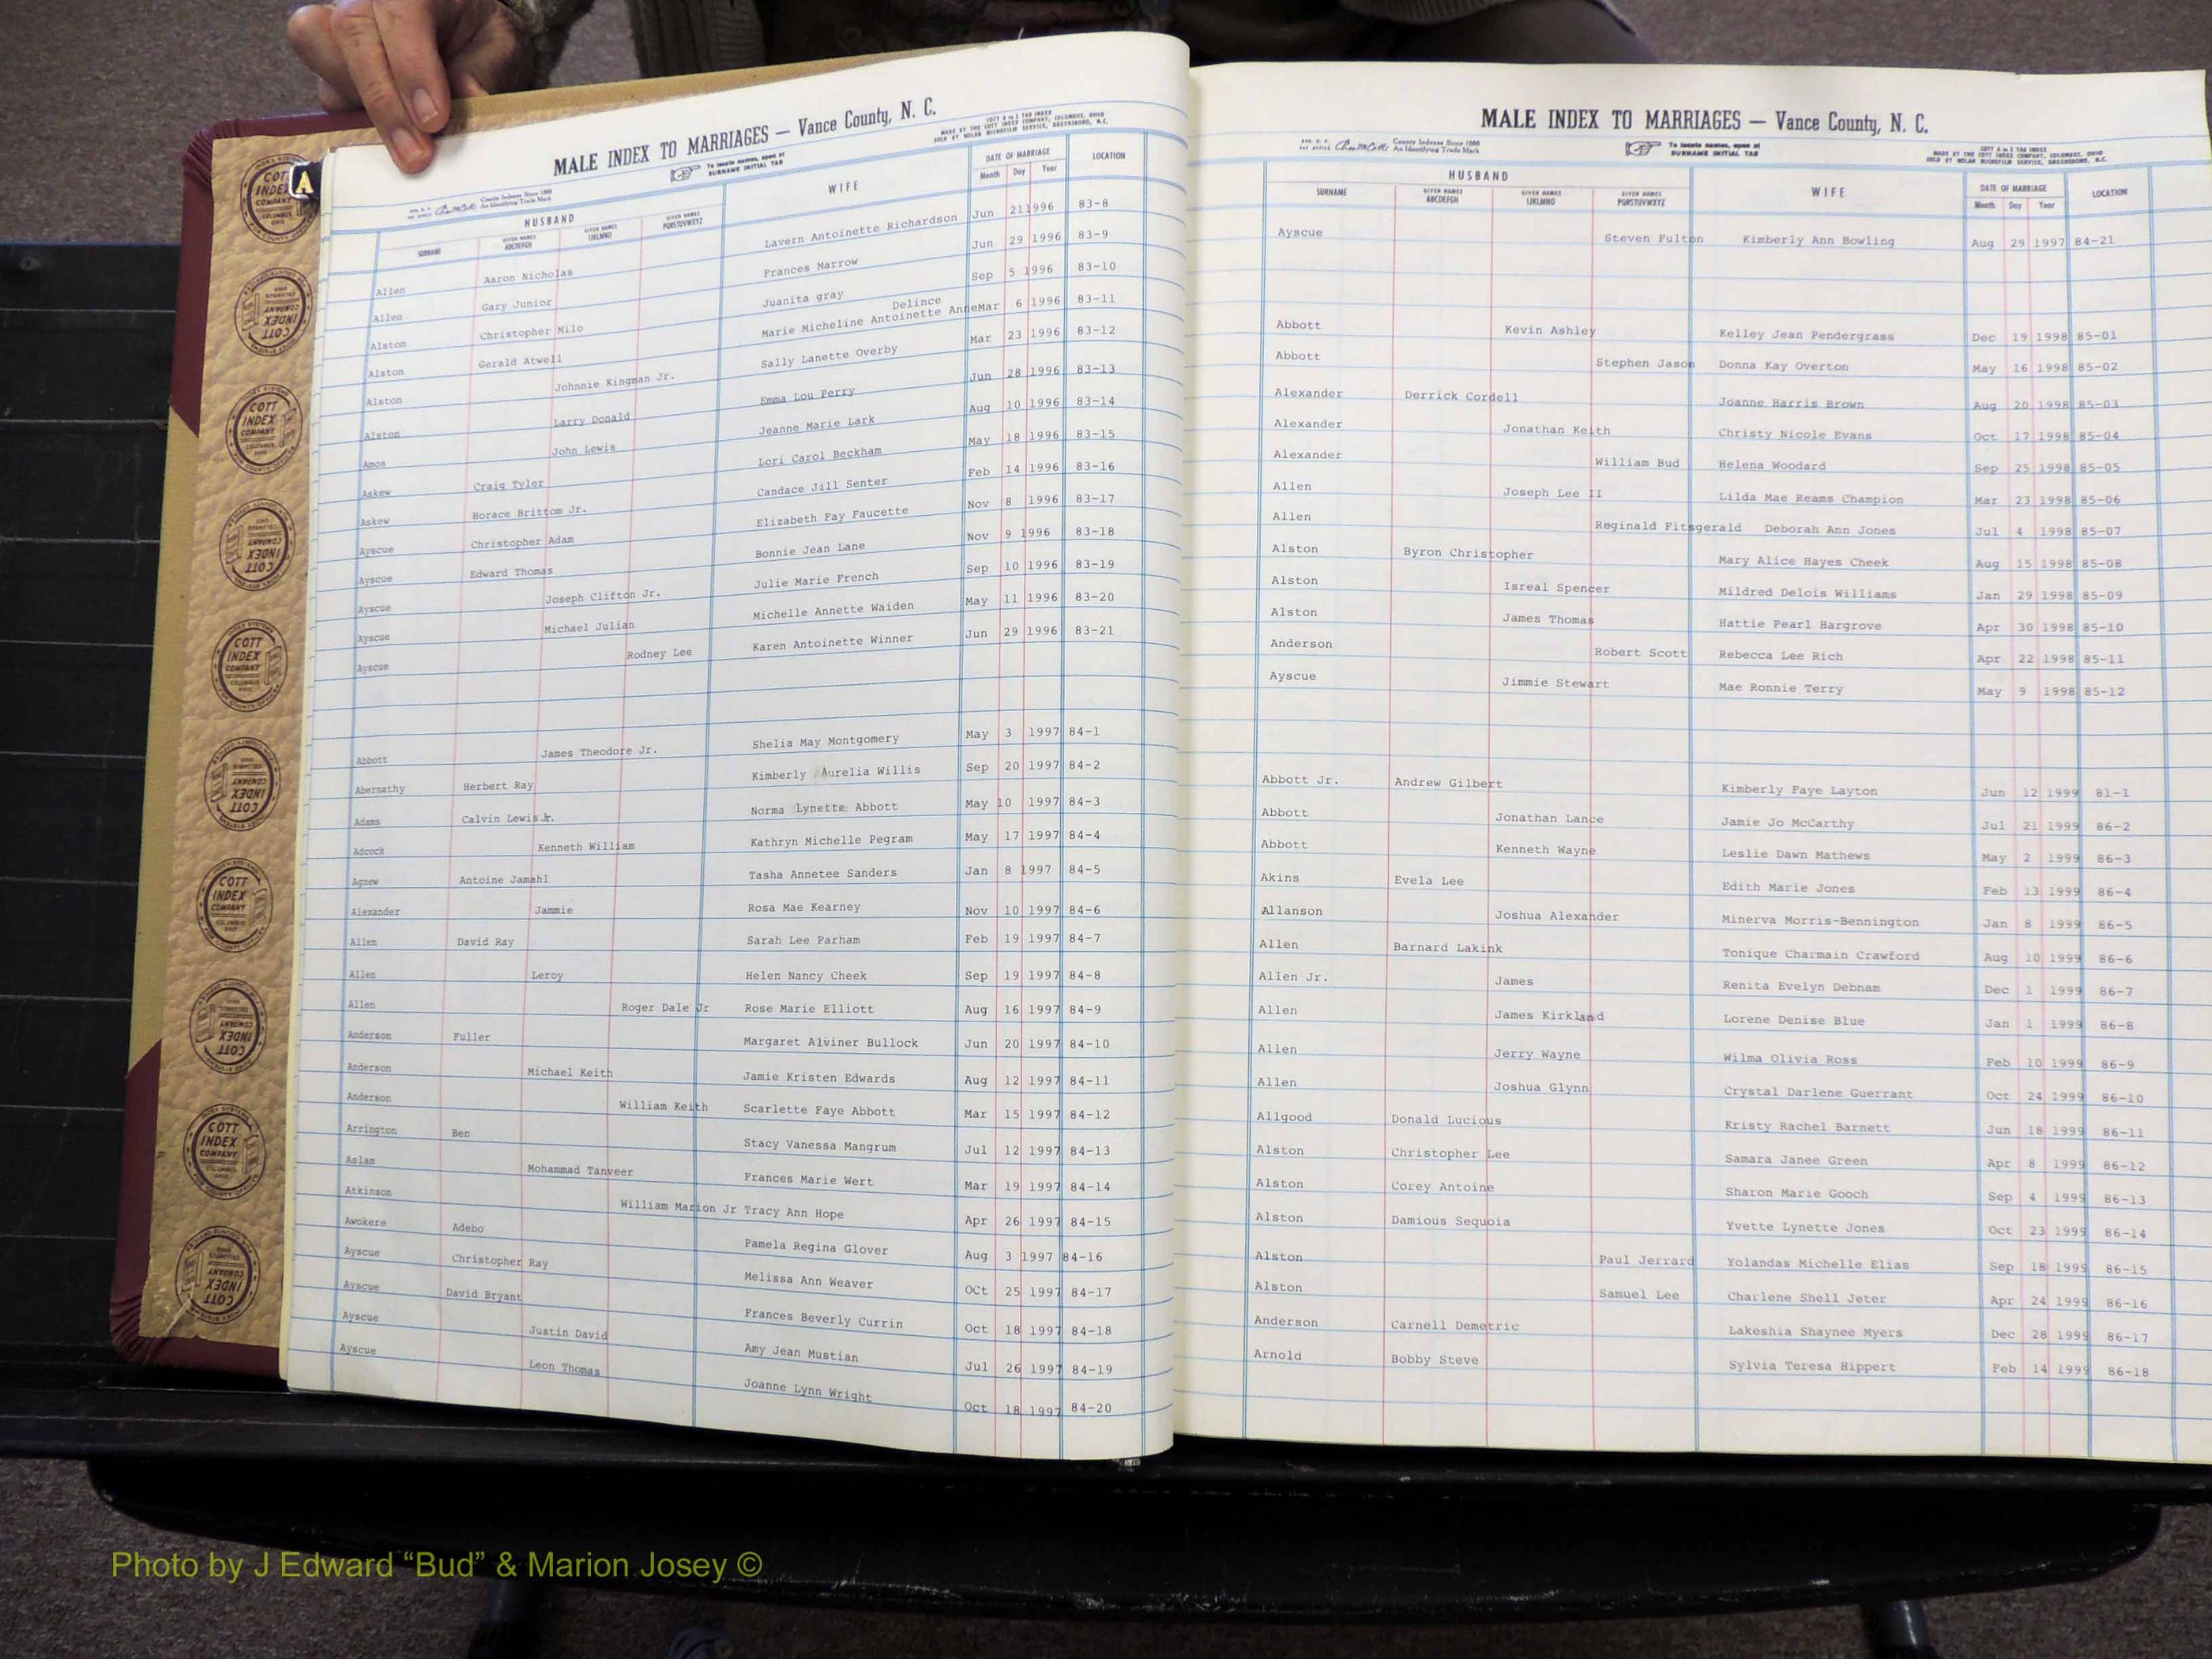 MALE INDEX TO MARRIAGES — Vance County, N. C.
COTT A to Z TAB INDEX
MADE BY THE COTT INDEX COMPANY, COLUMBUS, OHIO
SOLD BY NOLAN MICROFILM SERVICE, GREENSBORO, N.C.
County Indexes Since 1888
An Identifying Trade Mark
To locate names, open at
SURNAME INITIAL TAB
HUSBAND WIFE DATE OF MARRIAGE LOCATION
SURNAME GIVEN NAMES ABCDEFGH GIVEN NAMES IJKLMNO GIVEN NAMES PQRSTUVWXYZ Month Day Year
Allen Aaron Nicholas Lavern Antoinette Richardson Jun 21 1996 83-8
Allen Gary Junior Frances Marrow Jun 29 1996 83-9
Alston Christopher Milo Juanita gray Sep 5 1996 83-10
Alston Gerald Atwell Marie Micheline Antoinette Anne Delince Mar 6 1996 83-11
Alston Johnnie Kingman Jr. Sally Lanette Overby Mar 23 1996 83-12
Alston Larry Donald Emma Lou Perry Jun 28 1996 83-13
Amos John Lewis Jeanne Marie Lark Aug 10 1996 83-14
Askew Craig Tyler Lori Carol Beckham May 18 1996 83-15
Askew Horace Brittom Jr. Candace Jill Senter Feb 14 1996 83-16
Ayscue Christopher Adam Elizabeth Fay Faucette Nov 8 1996 83-17
Ayscue Edward Thomas Bonnie Jean Lane Nov 9 1996 83-18
Ayscue Joseph Clifton Jr. Julie Marie French Sep 10 1996 83-19
Ayscue Michael Julian Michelle Annette Waiden May 11 1996 83-20
Ayscue Rodney Lee Karen Antoinette Winner Jun 29 1996 83-21
Abbott James Theodore Jr. Shelia May Montgomery May 3 1997 84-1
Abernathy Herbert Ray Kimberly Aurelia Willis Sep 20 1997 84-2
Adams Calvin Lewis Jr. Norma Lynette Abbott May 10 1997 84-3
Adcock Kenneth William Kathryn Michelle Pegram May 17 1997 84-4
Agnew Antoine Jamahl Tasha Annetee Sanders Jan 8 1997 84-5
Alexander Jammie Rosa Mae Kearney Nov 10 1997 84-6
Allen David Ray Sarah Lee Parham Feb 19 1997 84-7
Allen Leroy Helen Nancy Cheek Sep 19 1997 84-8
Allen Roger Dale Jr Rose Marie Elliott Aug 16 1997 84-9
Anderson Fuller Margaret Alviner Bullock Jun 20 1997 84-10
Anderson Michael Keith Jamie Kristen Edwards Aug 12 1997 84-11
Anderson William Keith Scarlette Faye Abbott Mar 15 1997 84-12
Arrington Ben Stacy Vanessa Mangrum Jul 12 1997 84-13
Aslam Mohammad Tanveer Frances Marie Wert Mar 19 1997 84-14
Atkinson William Marion Jr Tracy Ann Hope Apr 26 1997 84-15
Awokere Adebo Pamela Regina Glover Aug 3 1997 84-16
Ayscue Christopher Ray Melissa Ann Weaver OCt 25 1997 84-17
Ayscue David Bryant Frances Beverly Currin Oct 18 1997 84-18
Ayscue Justin David Amy Jean Mustian Jul 26 1997 84-19
Ayscue Leon Thomas Joanne Lynn Wright Oct 18 1997 84-20
MALE INDEX TO MARRIAGES — Vance County, N. C.
County Indexes Since 1888
An Identifying Trade Mark
To locate names, open at
SURNAME INITIAL TAB
COTT A to Z TAB INDEX
MADE BY THE COTT INDEX COMPANY, COLUMBUS, OHIO
SOLD BY NOLAN MICROFILM SERVICE, GREENSBORO, N.C.
HUSBAND WIFE DATE OF MARRIAGE LOCATION
SURNAME GIVEN NAMES ABCDEFGH GIVEN NAMES IJKLMNO GIVEN NAMES PQRSTUVWXYZ Month Day Year
Ayscue Steven Fulton Kimberly Ann Bowling Aug 29 1997 84-21
Abbott Kevin Ashley Kelley Jean Pendergrass Dec 19 1998 85-01
Abbott Stephen Jason Donna Kay Overton May 16 1998 85-02
Alexander Derrick Cordell Joanne Harris Brown Aug 20 1998 85-03
Alexander Jonathan Keith Christy Nicole Evans Oct 17 1998 85-04
Alexander William Bud Helena Woodard Sep 25 1998 85-05
Allen Joseph Lee II Lilda Mae Reams Champion Mar 23 1998 85-06
Allen Reginald Fitsgerald Deborah Ann Jones Jul 4 1998 85-07
Alston Byron Christopher Mary Alice Hayes Cheek Aug 15 1998 85-08
Alston Isreal Spencer Mildred Delois Williams Jan 29 1998 85-09
Alston James Thomas Hattie Pearl Hargrove Apr 30 1998 85-10
Anderson Robert Scott Rebecca Lee Rich Apr 22 1998 85-11
Ayscue Jimmie Stewart Mae Ronnie Terry May 9 1998 85-12
Abbott Jr. Andrew Gilbert Kimberly Faye Layton Jun 12 1999 81-1
Abbott Jonathan Lance Jamie Jo McCarthy Jul 21 1999 86-2
Abbott Kenneth Wayne Leslie Dawn Mathews May 2 1999 86-3
Akins Evela Lee Edith Marie Jones Feb 13 1999 86-4
Allanson Joshua Alexander Minerva Morris-Bennington Jan 8 1999 86-5
Allen Barnard Lakink Tonique Charmain Crawford Aug 10 1999 86-6
Allen Jr. James Renita Evelyn Debnam Dec 1 1999 86-7
Allen James Kirkland Lorene Denise Blue Jan 1 1999 86-8
Allen Jerry Wayne Wilma Olivia Ross Feb 10 1999 86-9
Allen Joshua Glynn Crystal Darlene Guerrant Oct 24 1999 86-10
Allgood Donald Lucious Kristy Rachel Barnett Jun 18 1999 86-11
Alston Christopher Lee Samara Janee Green Apr 8 1999 86-12
Alston Corey Antoine Sharon Marie Gooch Sep 4 1999 86-13
Alston Damious Sequoia Yvette Lynette Jones Oct 23 1999 86-14
Alston Paul Jerrard Yolandas Michelle Elias Sep 18 1999 86-15
Alston Samuel Lee Charlene Shell Jeter Apr 24 1999 86-16
Anderson Carnell Demetric Lakeshia Shaynee Myers Dec 28 1999 86-17
Arnold Bobby Steve Sylvia Teresa Hippert Feb 14 1999 86-18
A
COTT INDEX COMPANY
Photo by J Edward “Bud” & Marion Josey ©